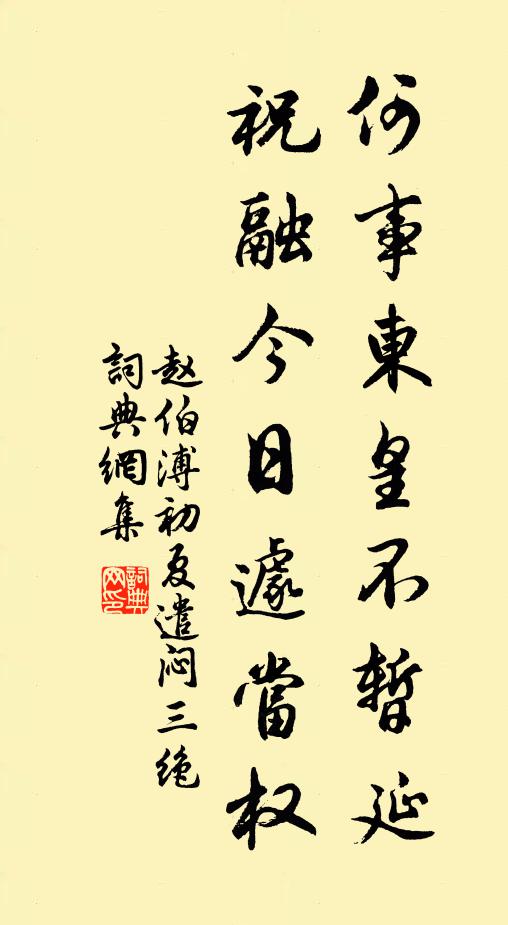 何事東皇不暫延
祝融今日遽當权
赵伯溥初夏遣闷三绝
詞典網集
詞典
网印